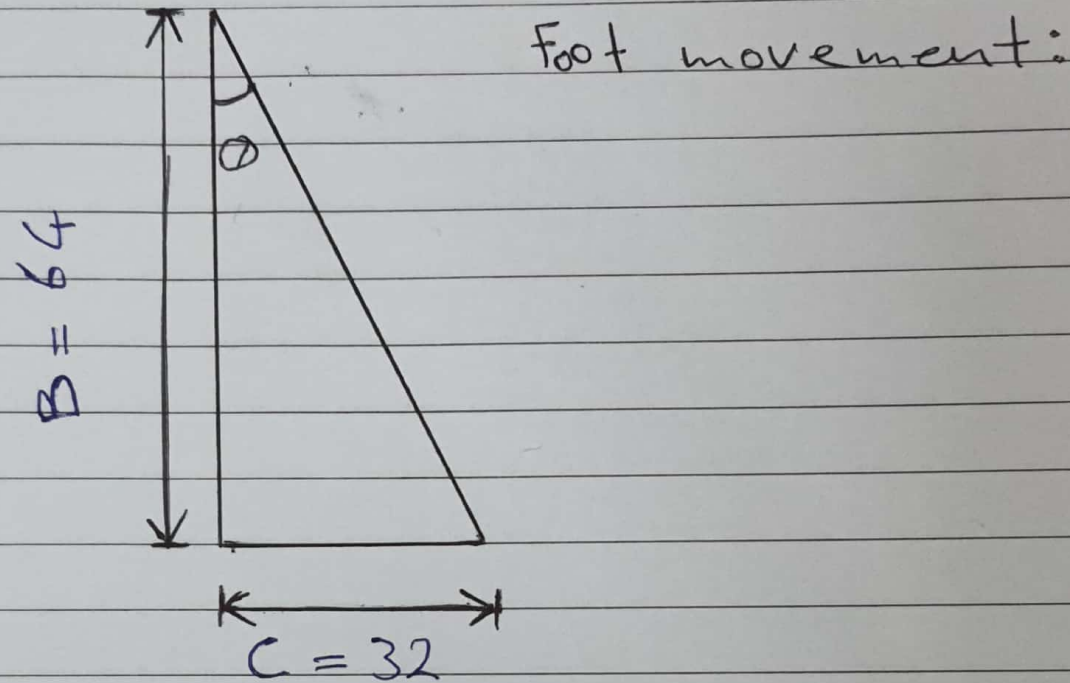 Foot movement:
θ
B = 64
C = 32